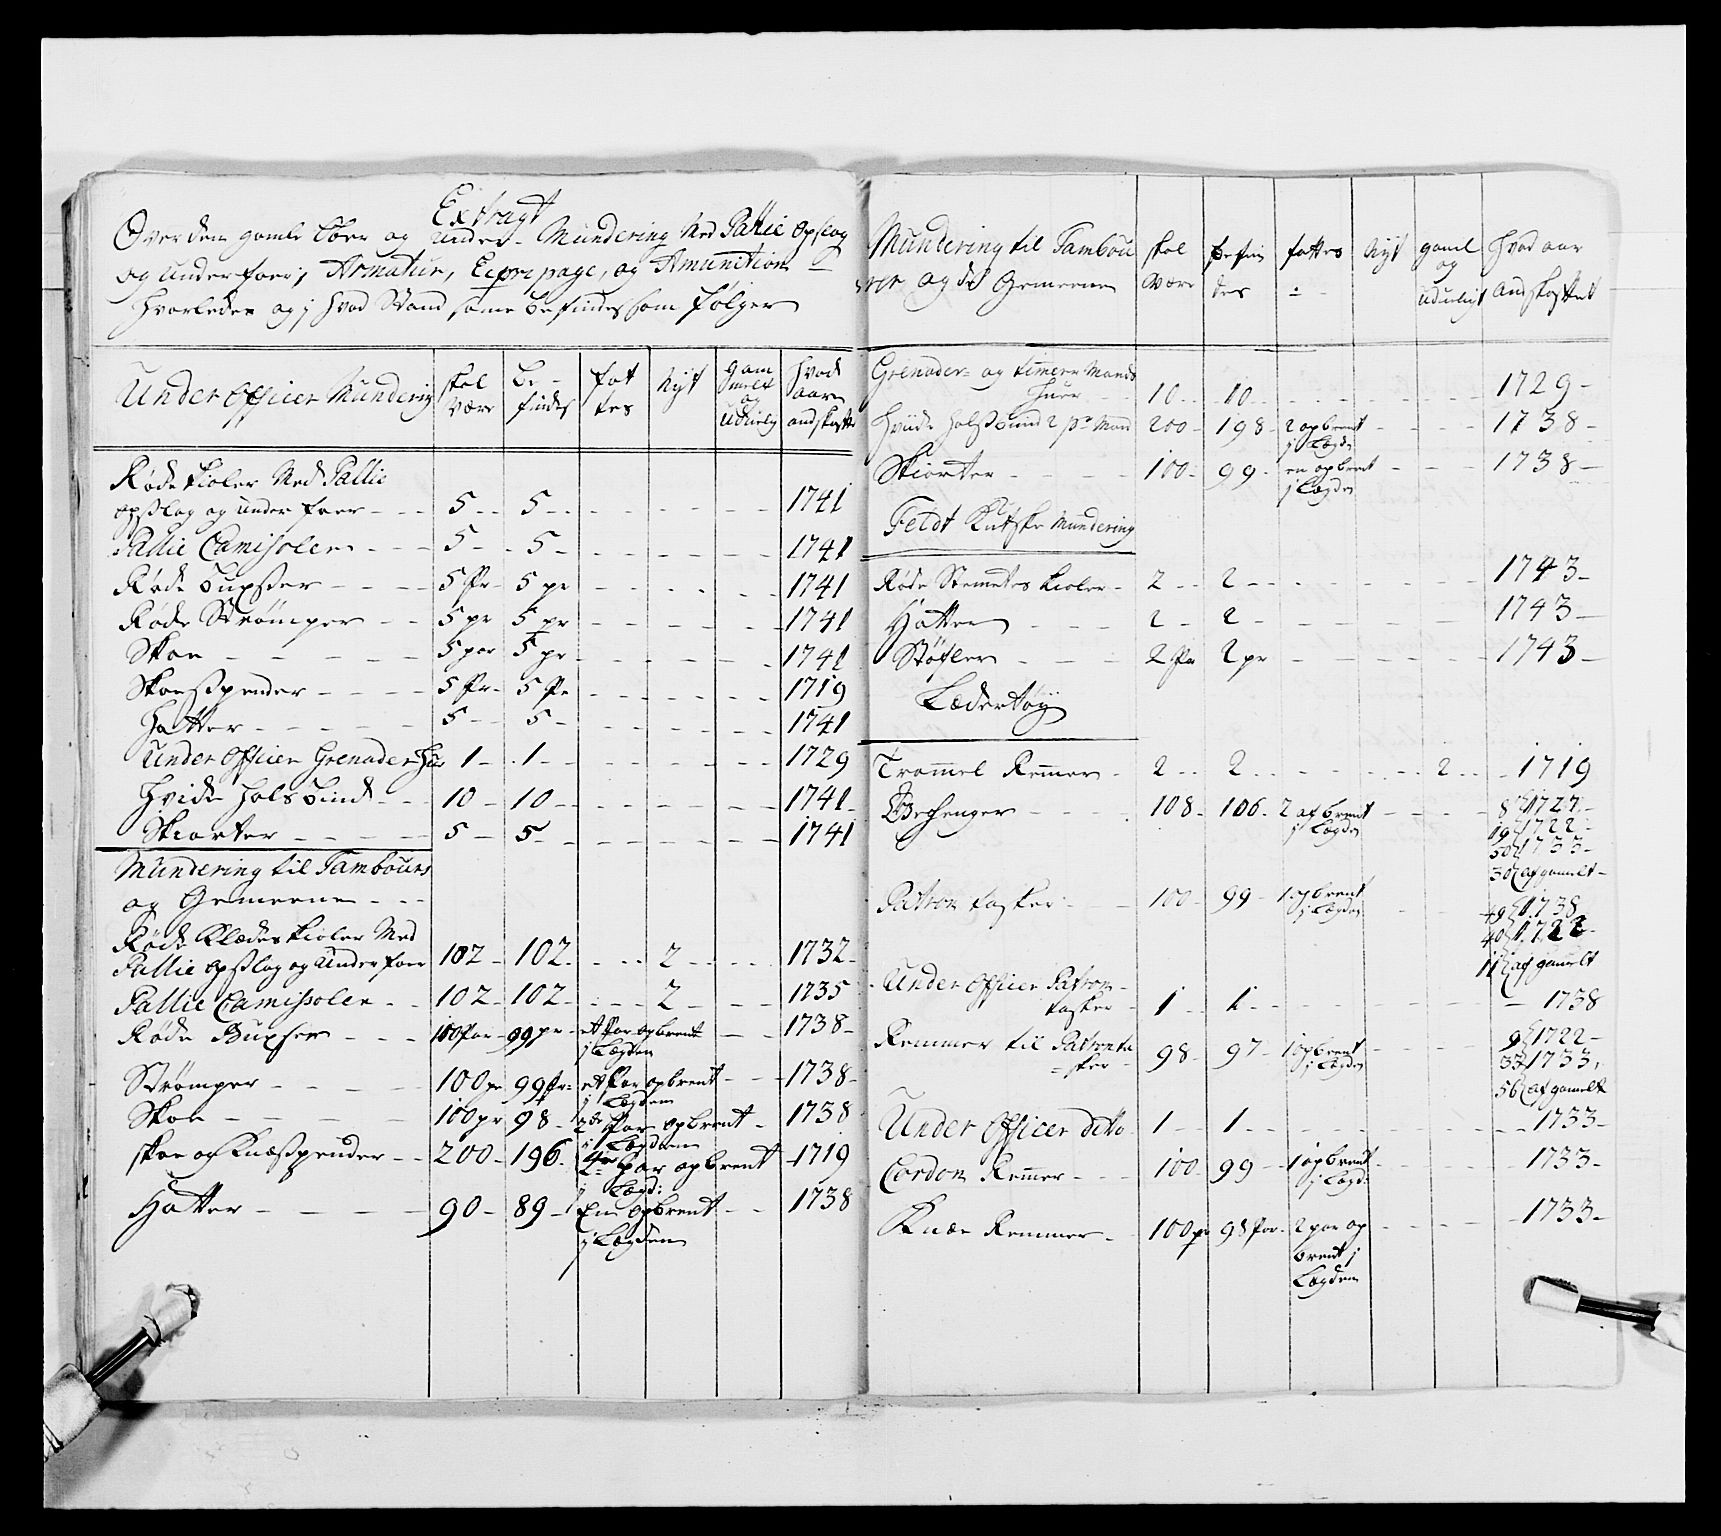 Extragt
Over dem gamle Over og Under-Mundering Med Pallie Opslag
og Underfoer, Armatur, Eqvipage, og Amunition
hvorledes og j hvad Stand same befindes som følger
Under Officer Mundering skal være be-findes fat tes Nyt Gam melt og Uduelig hvad aar andskaffet
Røde Kioler Med Pallie
opslag og Under foer - - - 5 - - 5 - - 1741
Pallie Camisoler - - - 5 - - 5 - 1741
Røde Buxser - - - 5 Pr - 5 pr 1741
Røde Strømper - - 5 pr 5 pr 1741
Skoe - - - - 5 par 5 pr 1741
Skoespender - - - - 5 Pr - 5 Pr 1719
Hatter - - - - 5 - - 5 - 1741
Under Officer Grenadeer Hue 1 - 1 - - 1729
Hvide Hals bind - - 10 - 10 - - 1741
Skiorter - - - - 5 - 5 - 1741
Mundering til Tambours
og Gemeene - - -
Røde Klædes Kioler Med
Pallie Opslag og Under foer 102 - 102 - 2 - - 1732 -
Pallie Camisoler - - 102 - 102 - 2 - - 1735
Røde Buxser - - - 100 Par - 99 pr - et Par opbrent - - 1738 -
j Lægden
Strømper - - - - 100 pr 99 Pr - et Par opbrent - - 1738 -
j Lægden
Skoe - - - - 100 pr 98 - 2de Par opbrent - 1738
j Lægden
skoe og Knæspender - - 200 - 196 - 4re par opbrent - 1719
j Lægd:
Hatter - - - - 90 - 89 - En opbrent - - 1738
j Lægden
Mundering til Tambou
rer og de Gemeene skal være befin des fattes Nyt gaml og udueligt hvad aar andskaffet
Grenader- og timmer Mands
Huer - - 10 - - 10 - - 1729 -
Hviide Halsbind 2 pr Mand 200 - 198 - 2 opbrent - - - 1738 -
j Lægd:
Skiorter - - - - 100 - 99 - en opbrent - - - 1738 -
j Lægden
Feldt Kudske Mundering
Røde Stemetes Kioler - 2 - - 2 - - 1743 -
Hatter - - - 2 - 2 - 1743 -
Støfler - - - 2 Par 2 pr - 1743 -
Lædertøy
Trommel Remmer - 2 - - 2 - - 2 - - 1719
Gehenger - - - - 108 - 106 - 2 opbrent - - - 8 1727 -
j Lægden 19 1722 -
50 1733 -
30 af gamelt -
Patron tasker - - - 100 - 99 - 1 opbrent - - 49 1738
j Lægden 40 1722 -
11 af gamelt
Under Officer Patron-
tasker - 1 - - 1 - - 1738
Remmer til Patronta
-sker - 98 - 97 - 1 opbrent - - - 9 1722 -
j Lægden 33 1733,
56 af gamelt
Under Officer ditto - 1 - - 1 - - 1733 -
Cordon Remer - - - 100 - 99 - - 1 opbrent - - - 1733 -
j Lægd:
Knæe Remmer - 100 pr 98 Par - 2 par op - - - - 1733 -
brent j
Lægden